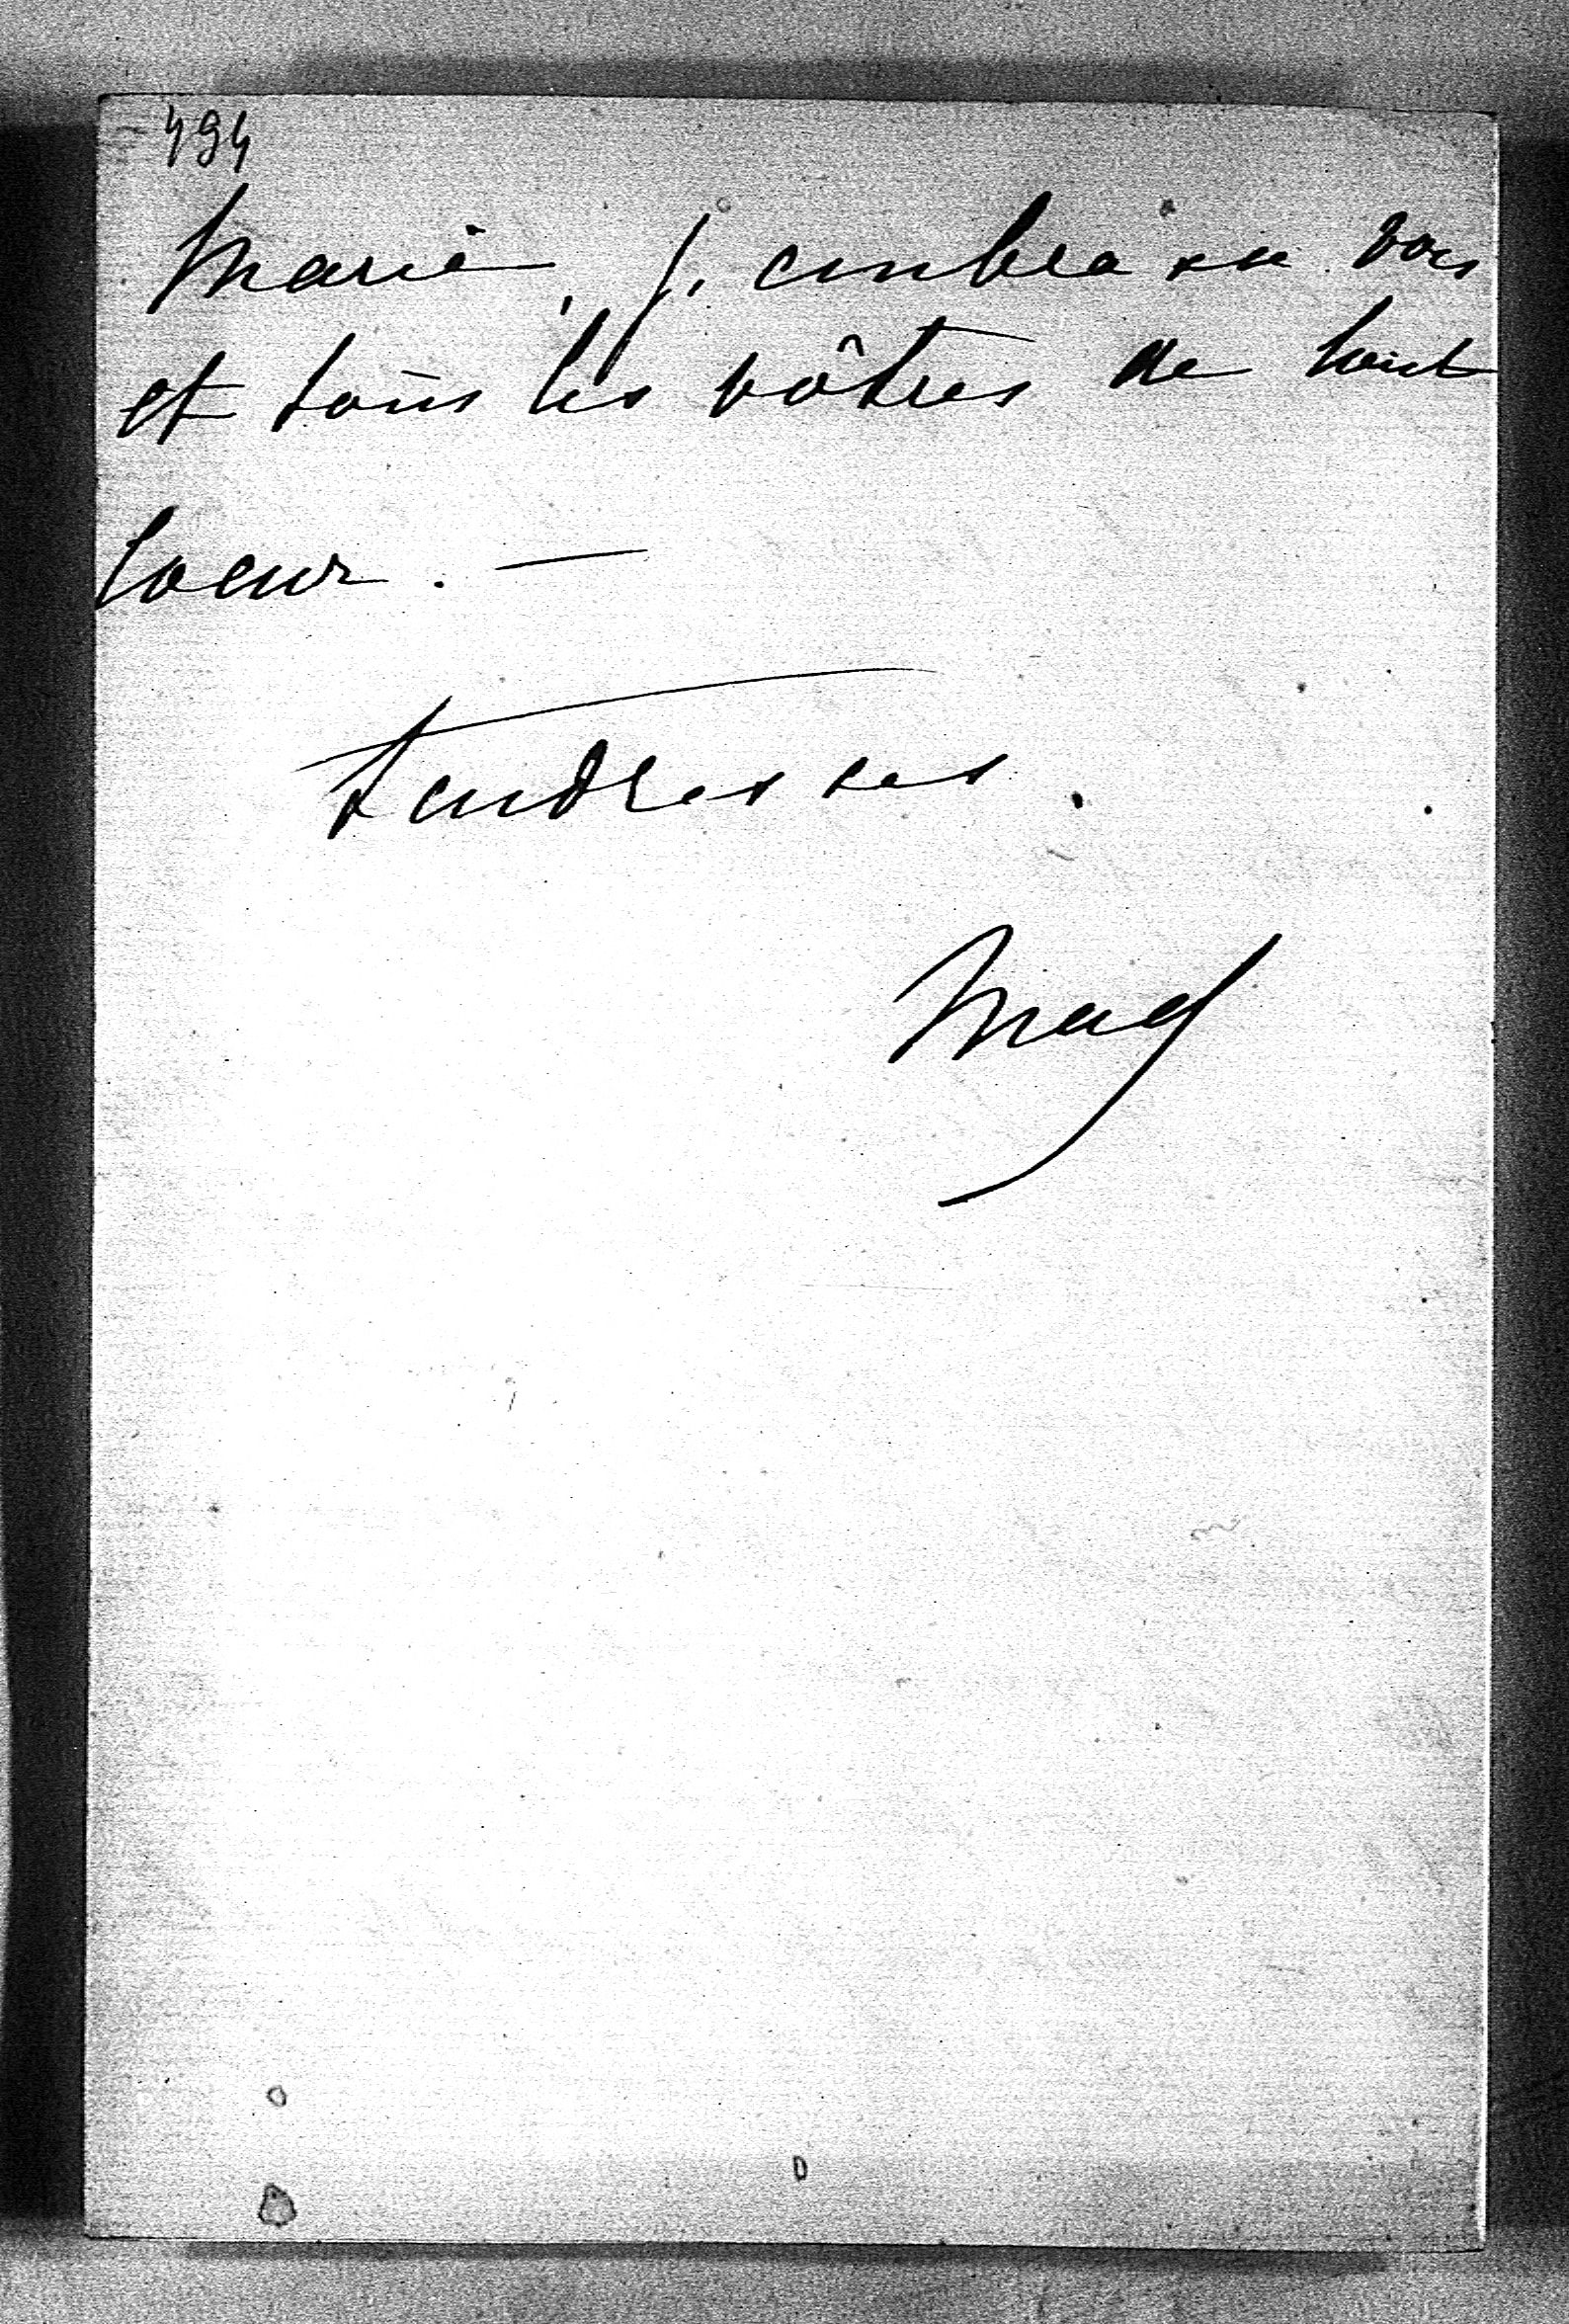 494
Marie, j'embrasse vous
et tous les vôtres de tout
coeur. —
Tendresses.
Mad